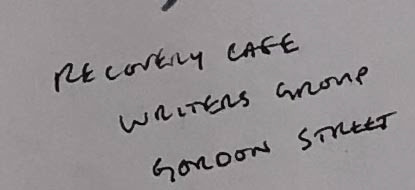 RECOVERY CAFE
WRITERS GROUP
GORDON STREET